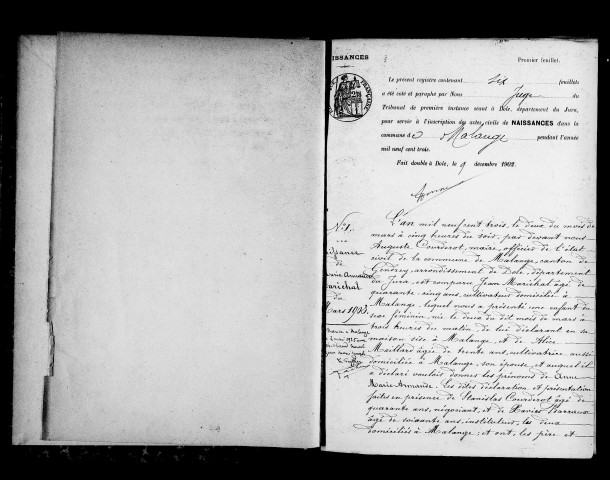 NAISSANCES
Premier feuillet.
Le présent registre contenant six feuillets
a été coté et paraphé par Nous Juge du
Tribunal de première instance séant à Dole, département du Jura,
pour servir à l'inscription des actes civils de NAISSANCES dans la
commune de Malange pendant l'année
mil neuf cent trois.
Fait double à Dole, le 9 décembre 1902.
N° 1.
Naissance
de
Marie Armande
Maréchal
du
Mars 1903.
L'an mil neuf cent trois, le deux du mois de
mars à cinq heures du soir, par devant nous
Auguste Courderot, maire, officier de l'état
civil de la commune de Malange, canton de
Gendrey, arrondissement de Dole, département
du Jura, est comparu Jean Maréchal âgé de
quarante-cinq ans, cultivateur domicilié à
Malange, lequel nous a présenté une enfant du
sexe féminin, née le deux du dit mois de mars à
trois heures du matin, de lui déclarant en sa
maison sise à Malange, et de Alice
Maillard âgée de trente ans, cultivatrice aussi
domiciliée à Malange, son épouse, et auquel il
a déclaré vouloir donner les prénoms de Anne
Marie Armande. Les dites déclaration et présentation
faites en présence de Stanislas Courderot âgé de
quarante ans, négociant, et de Xavier
âgé de soixante ans, instituteur, les deux
domiciliés à Malange; et ont, les père et